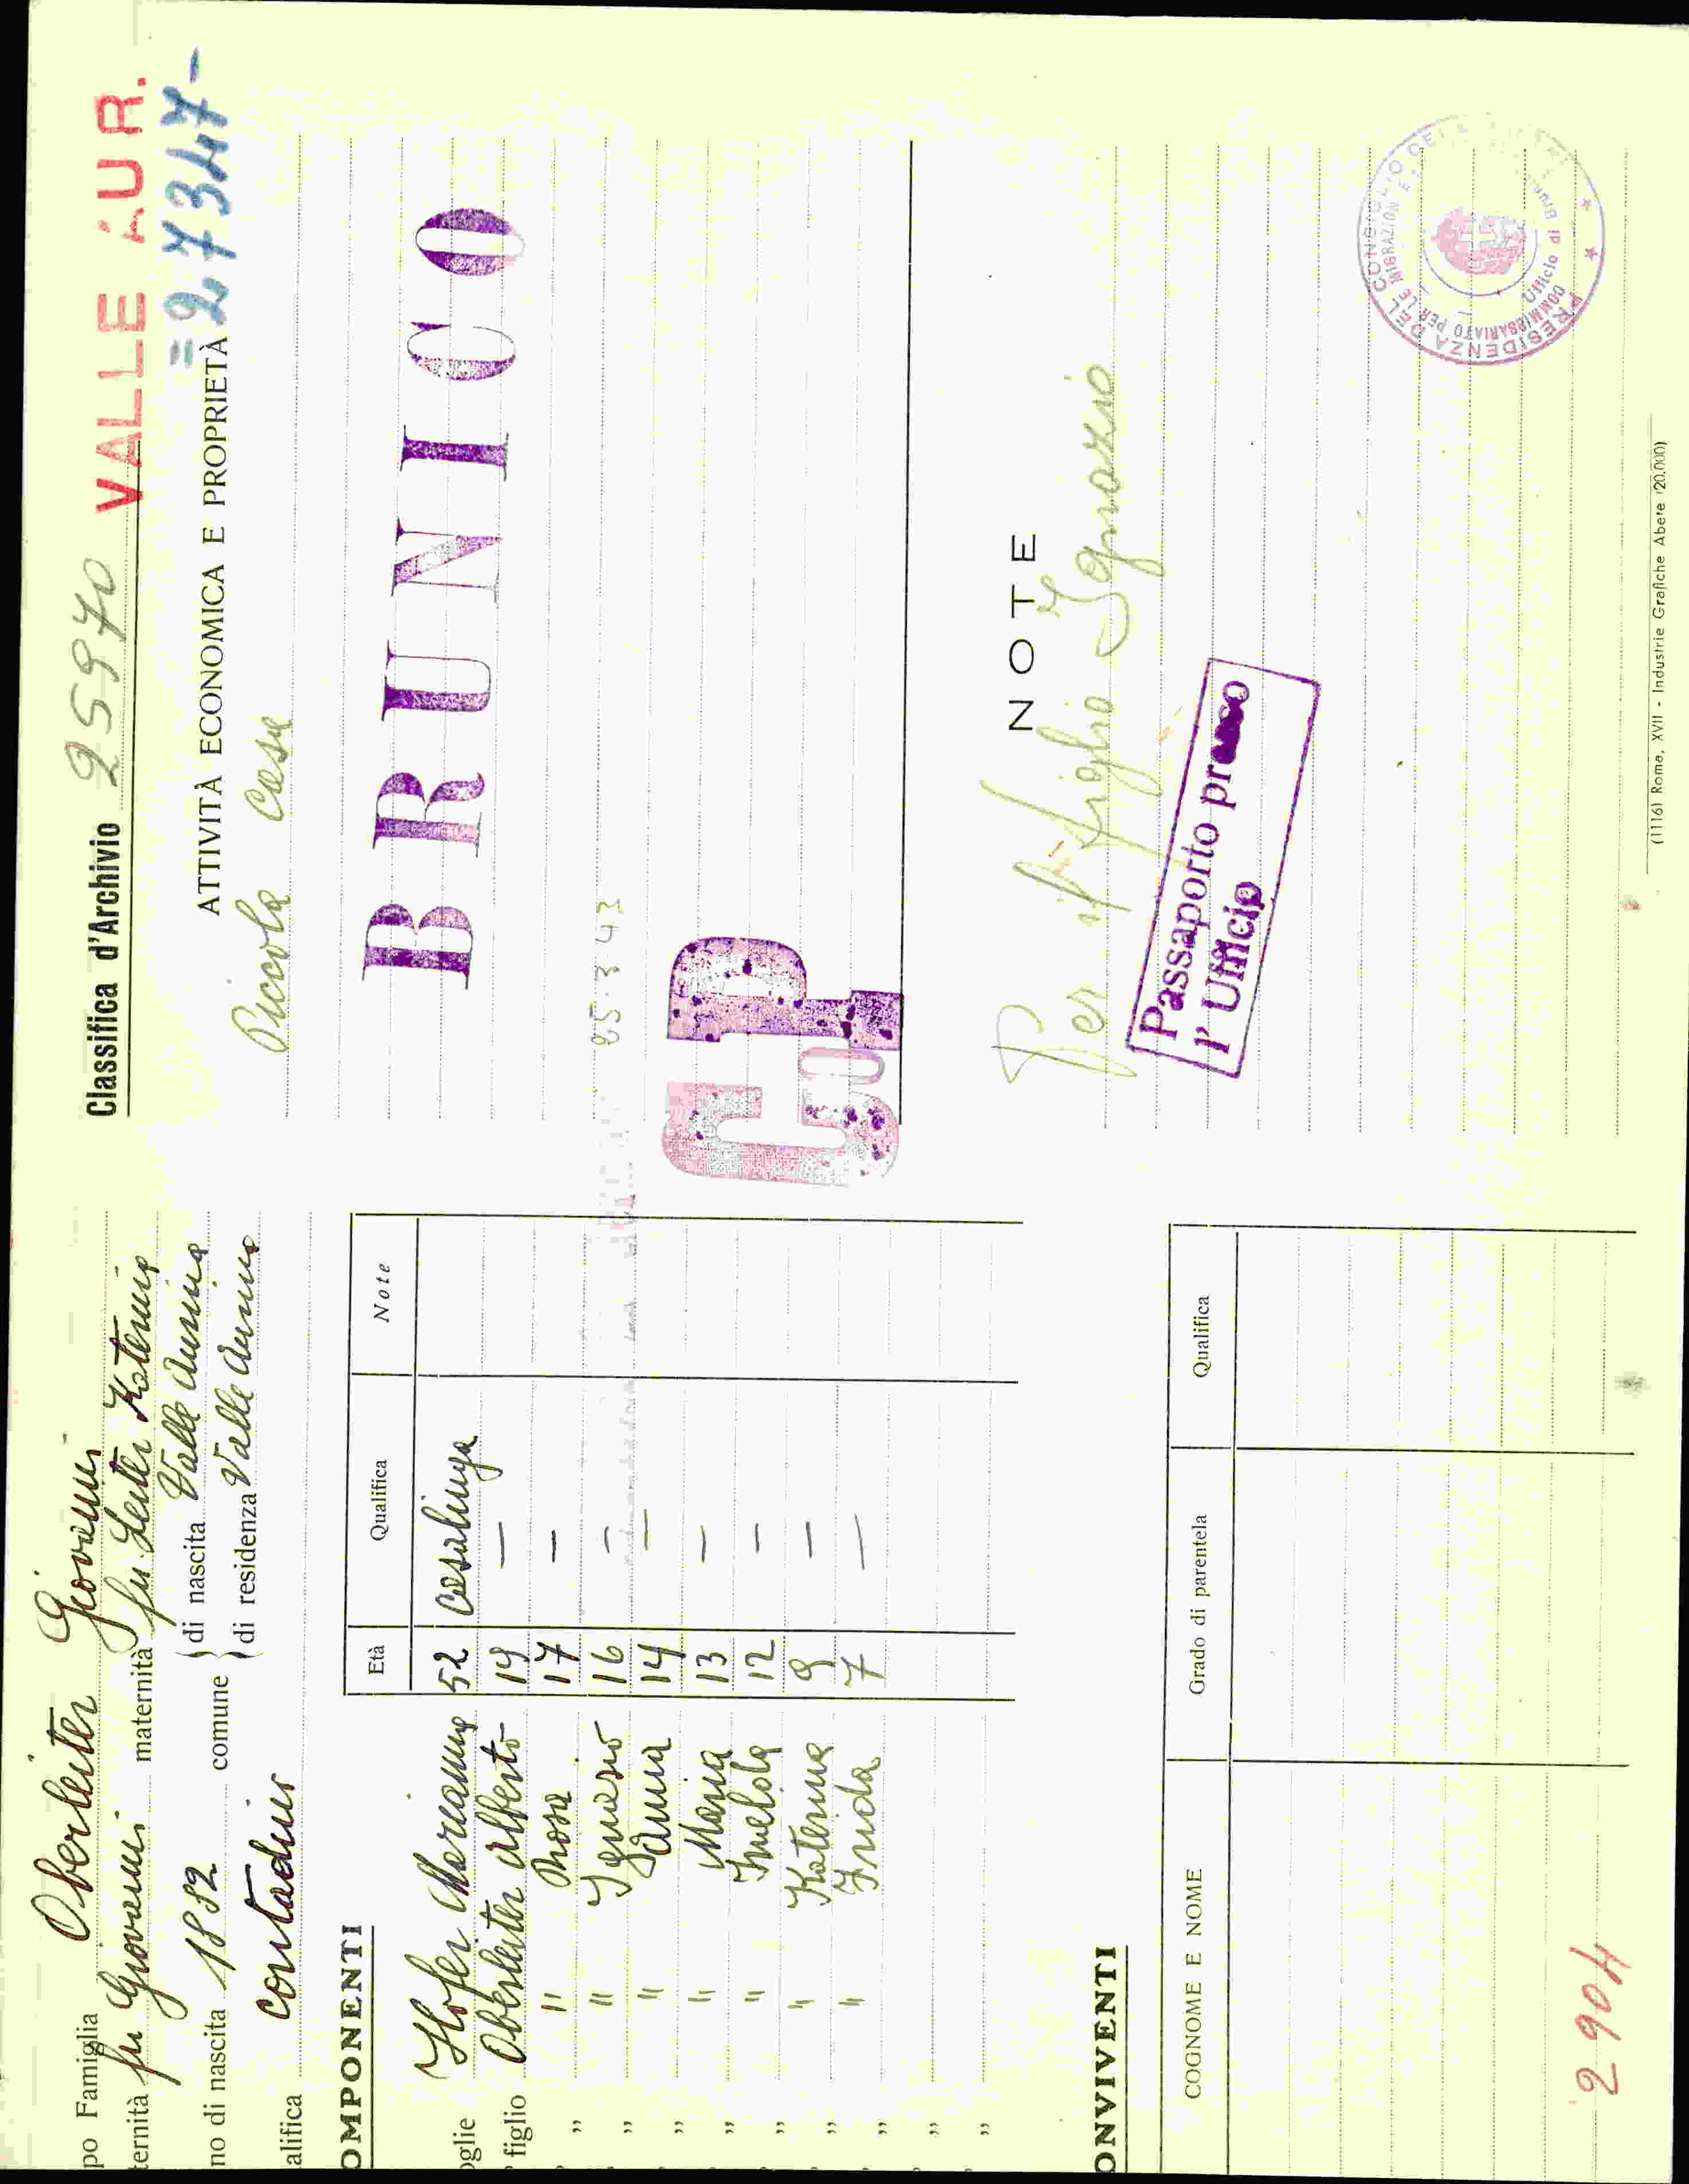 po Famiglia Oberleiter Giovanni
ternità fu Giovanni maternità fu Leiter Katerina
no di nascita 1882 comune } di nascita Valle Aurina
} di residenza Valle Aurina
alifica contadino
OMPONENTI
Età Qualifica Note
oglie Hofer Marianna 52 casalinga
figlio Oberleiter Alberto 19 —
" " Rosa 17 —
" " Ignazio 16 —
" " Anna 14 —
" " Maria 13 —
" " 12 —
" " Katerina 9 —
" " Frida 7 —
"
"
ONVIVENTI
COGNOME E NOME Grado di parentela Qualifica
2904
Classifica d'Archivio 25970 VALLE AUR.
=27347-
ATTIVITÀ ECONOMICA E PROPRIETÀ
Piccola casa
BRUNICO
25.3.43
NOTE
Per il figlio Ignazio
Passaporto presso
l' Ufficio
PRESIDENZA DEL CONSIGLIO
COMMISSARIATO PER LE MIGRAZION
Ufficio di
(11161 Roma, XVII - Industrie Grafiche Abete (20.000)